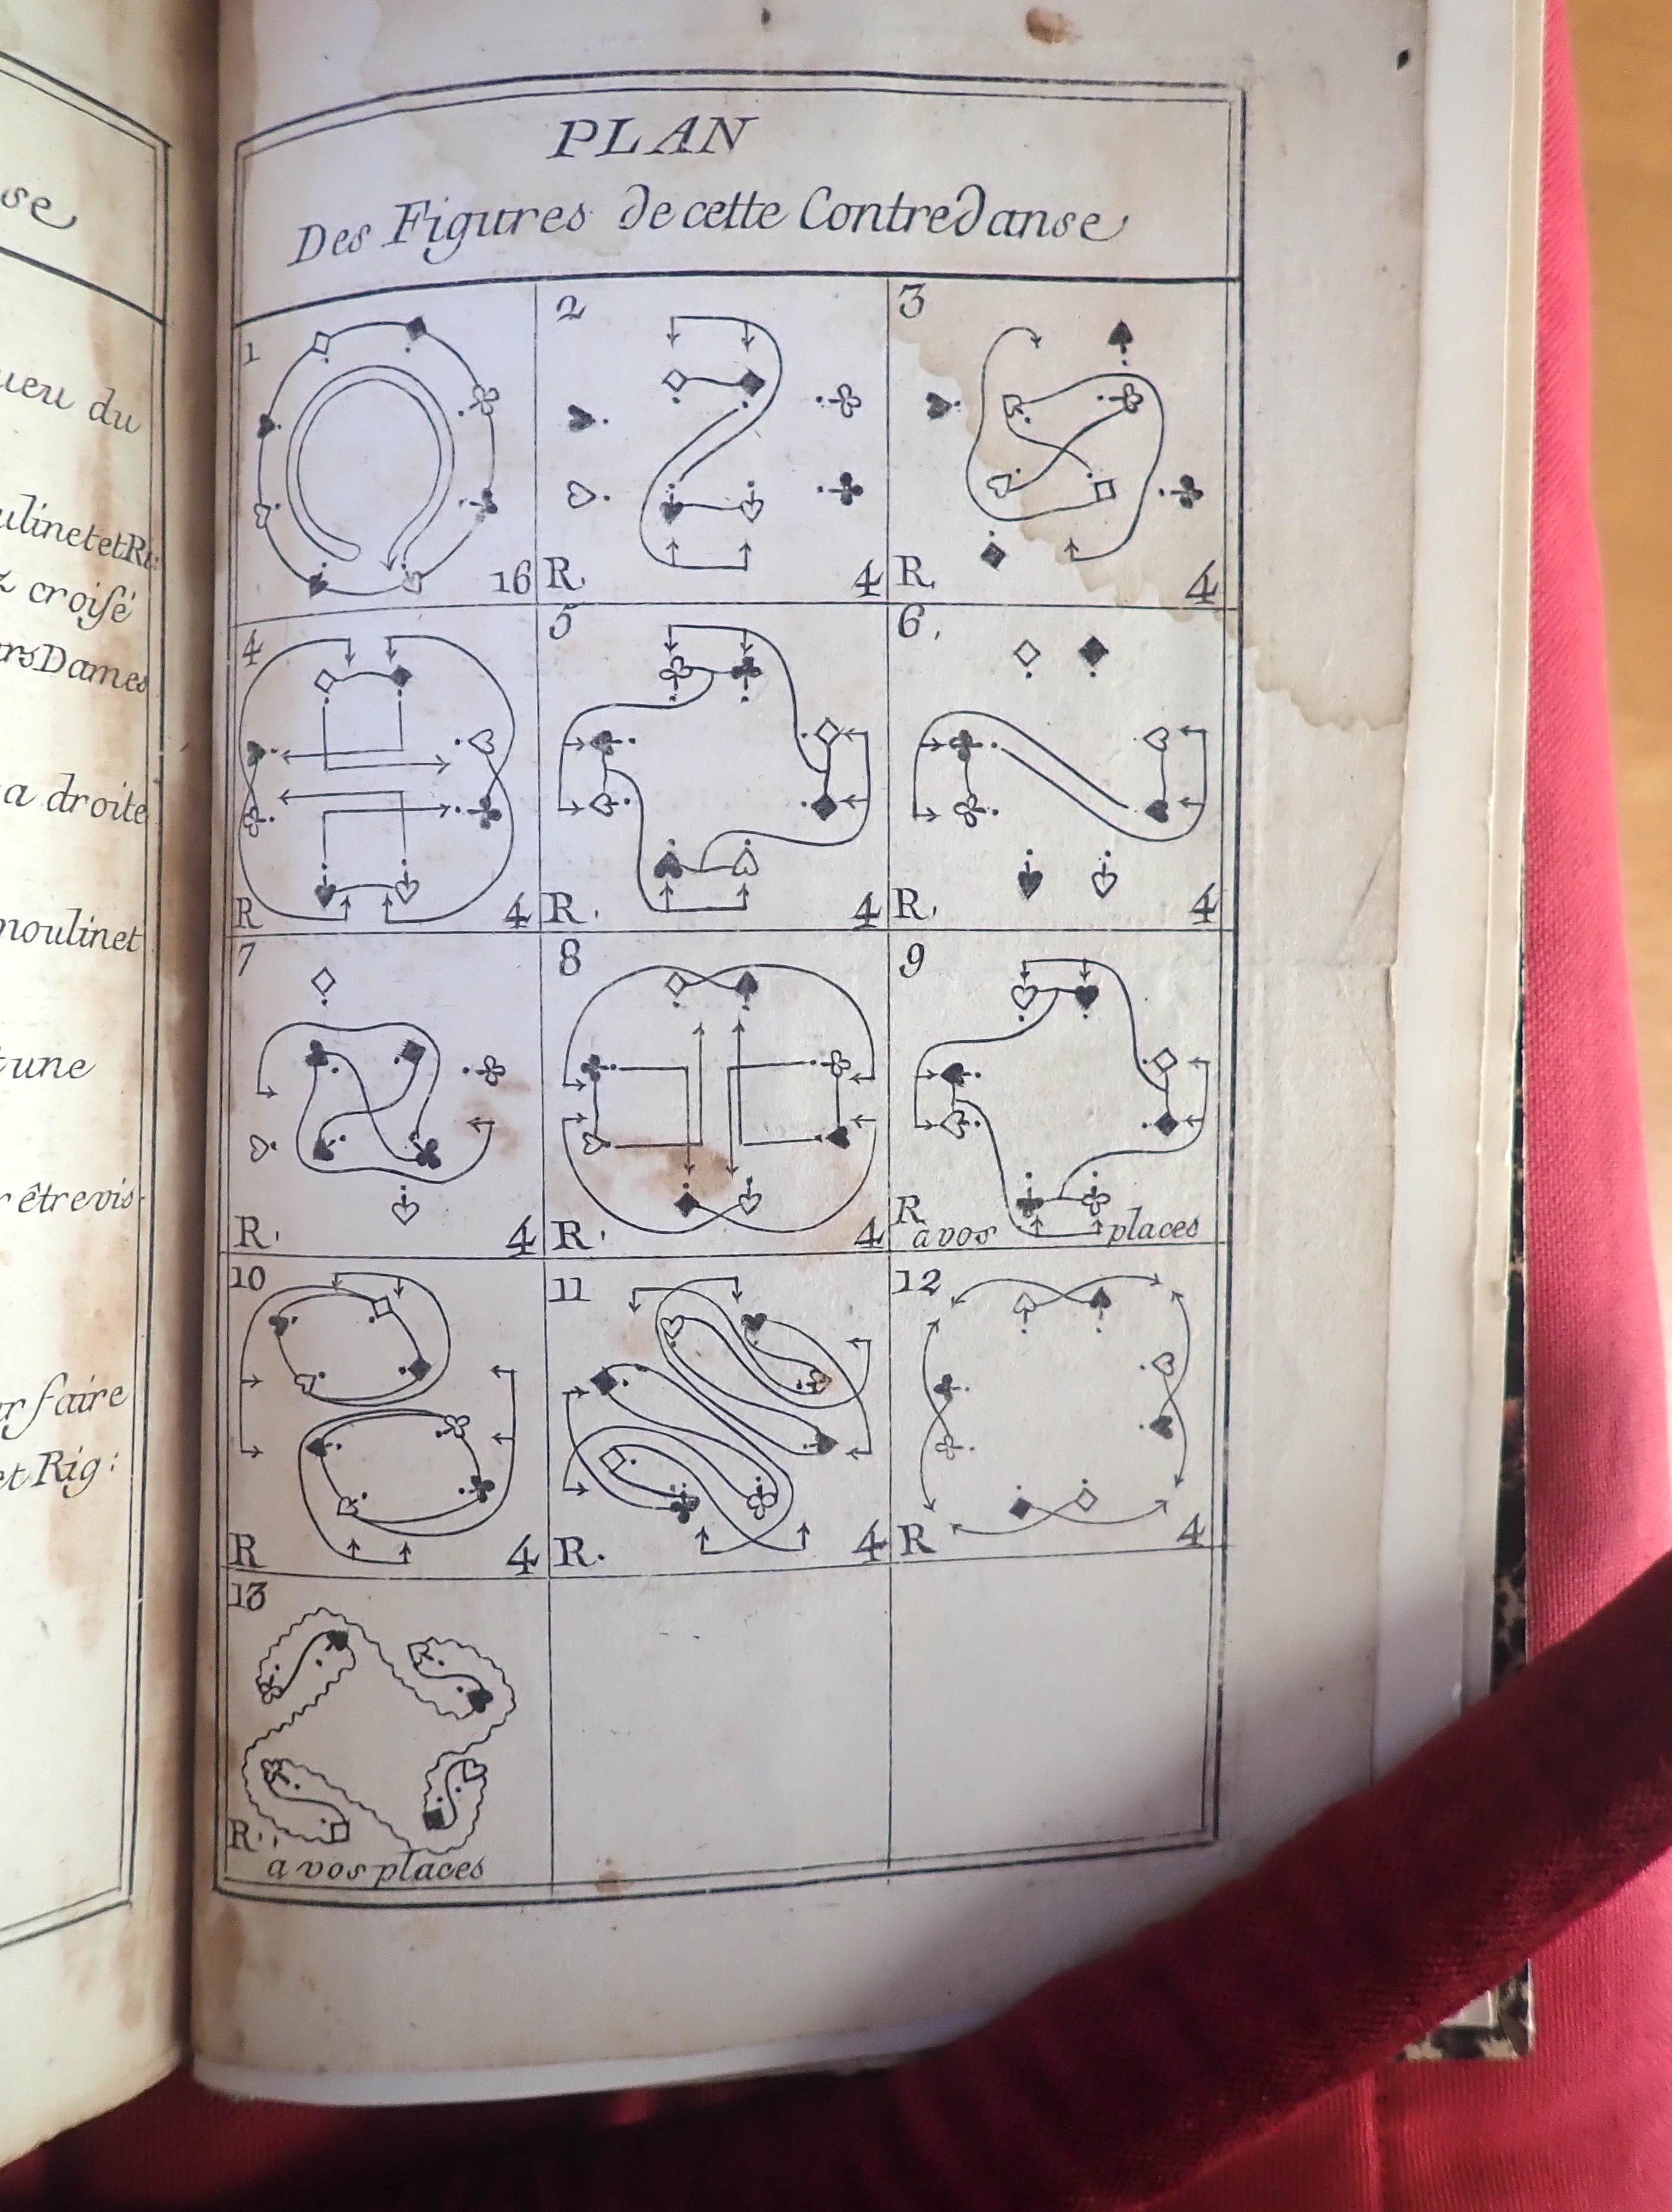 se
ueu du
ulinet et R
z croisé
rs Dames
a droite
moulinet
une
r être vis
r faire
et Rig:
PLAN
Des Figures de cette Contredanse
1
16
2
R.
4
3
R.
4
4
R
4
5
R.
4
6.
R.
4
7
R.
4
8
R.
4
9
R
a vos places
10
R
4
11
R.
4
12
R
4
13
R.
a vos places